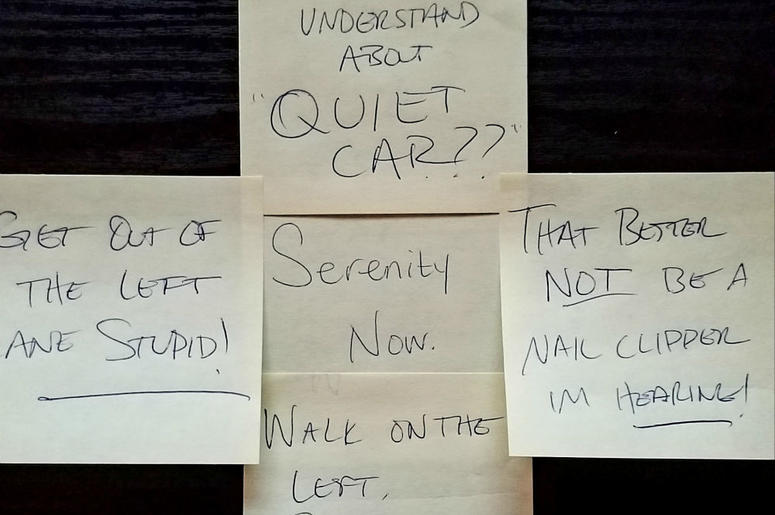 UNDERSTAND
ABOUT
"QUIET
CAR??"
GET OUT OF
THE LEFT
ANE STUPID!
Serenity
Now.
THAT BETTER
NOT BE A
NAIL CLIPPER
IM HEARING!
WALK ON THE
LEFT,